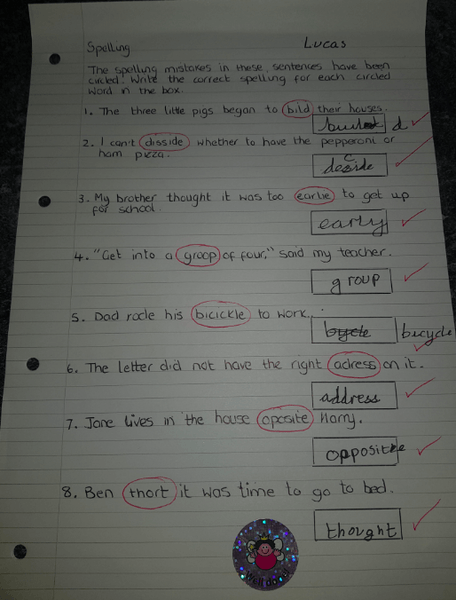 Spelling Lucas
The spelling mistakes in these sentences have been
circled. Write the correct spelling for each circled
word in the box.
1. The three little pigs began to bild their houses.
build
2. I can't disside whether to have the pepperoni or
ham pizza.
decide
3. My brother thought it was too earlie to get up
for school.
early
4. "Get into a groop of four," said my teacher.
group
5. Dad rode his bicickle to work.
bycle bicycle
6. The letter did not have the right adress on it.
address
7. Jane lives in the house oposite Harry.
opposite
8. Ben thort it was time to go to bed.
thought
Well done!